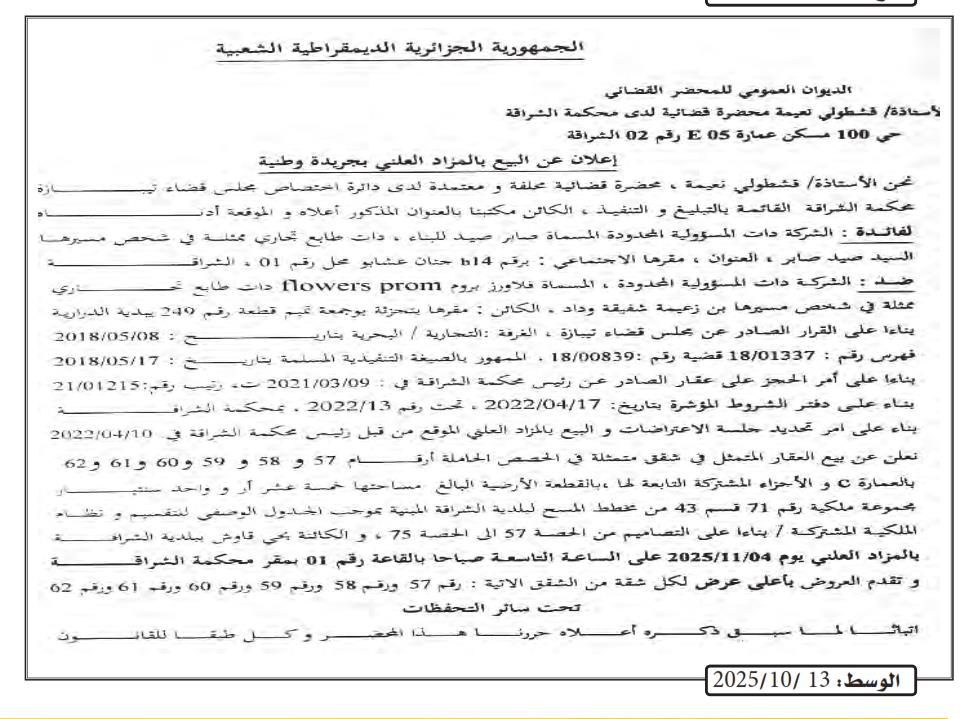 الجمهورية الجزائرية الديمقراطية الشعبية
الديوان العمومي للمحضر القضائي
الأستاذة/ قشطولي نعيمة محضرة قضائية لدى محكمة الشراقة
حي 100 مسكن عمارة E 05 رقم 02 الشراقة
إعلان عن البيع بالمزاد العلني بجريدة وطنية
نحن الأستاذة/ قشطولي نعيمة ، محضرة قضائية محلفة و معتمدة لدى دائرة اختصاص مجلس قضاء تيبـــــازة
محكمة الشراقة القائمة بالتبليغ و التنفيذ ، الكائن مكتبنا بالعنوان المذكور أعلاه و الموقعة أدنـــــاه
لفائدة : الشركة ذات المسؤولية المحدودة المسماة صابر صيد للبناء ، ذات طابع تجاري ممثلة في شخص مسيرها
السيد صيد صابر ، العنوان ، مقرها الاجتماعي : برقم b14 حنان عشابو محل رقم 01 ، الشراقـــــة
ضـــد : الشركة ذات المسؤولية المحدودة ، المسماة فلاورز بروم flowers prom ذات طابع تجـــــاري
ممثلة في شخص مسيرها بن زعيمة شفيقة وداد ، الكائن : مقرها بتجزئة بوجمعة تميم قطعة رقم 249 ببلدية الدرارية
بناءا على القرار الصادر عن مجلس قضاء تيبازة ، الغرفة: التجارية / البحرية بتاريـــــخ : 2018/05/08
فهرس رقم : 18/01337 قضية رقم :18/00839 . الممهور بالصيغة التنفيذية المسلمة بتاريـــــخ : 2018/05/17
بناءا على أمر الحجز على عقار الصادر عن رئيس محكمة الشراقة في : 2021/03/09 ت، رتيب رقم:21/01215
بناء على دفتر الشروط المؤشرة بتاريخ: 2022/04/17 ، تحت رقم 2022/13 . بمحكمة الشراقـــــة
بناء على امر تحديد جلسة الاعتراضات و البيع بالمزاد العلني الموقع من قبل رئيس محكمة الشراقة في 2022/04/10
نعلن عن بيع العقار المتمثل في شقق متمثلة في الحصص الحاملة أرقـــــام 57 و 58 و 59 و 60 و 61 و 62
بالعمارة C و الأجزاء المشتركة التابعة لها ،بالقطعة الأرضية البالغ مساحتها خمسة عشر أر و واحد سنتيـــــار
مجموعة ملكية رقم 71 قسم 43 من مخطط المسح لبلدية الشراقة المبنية بموجب الجدول الوصفي لتقسيم و نظام
الملكية المشتركة / بناءا على التصاميم من الحصة 57 الى الحصة 75 ، و الكائنة بحي قاوش ببلدية الشراقـــــة
بالمزاد العلني يوم 2025/11/04 على الساعة التاسعة صباحا بالقاعة رقم 01 بمقر محكمة الشراقـــــة
و تقدم العروض بأعلى عرض لكل شقة من الشقق الاتية : رقم 57 ورقم 58 ورقم 59 ورقم 60 ورقم 61 ورقم 62
تحت سائر التحفظات
اثباتـــا لمـا سبـــق ذكـــره أعـــلاه حررنـــا هـــذا المحضـــر و كـــل طبقـــا للقانـــون
الوسط: 13 /2025/10